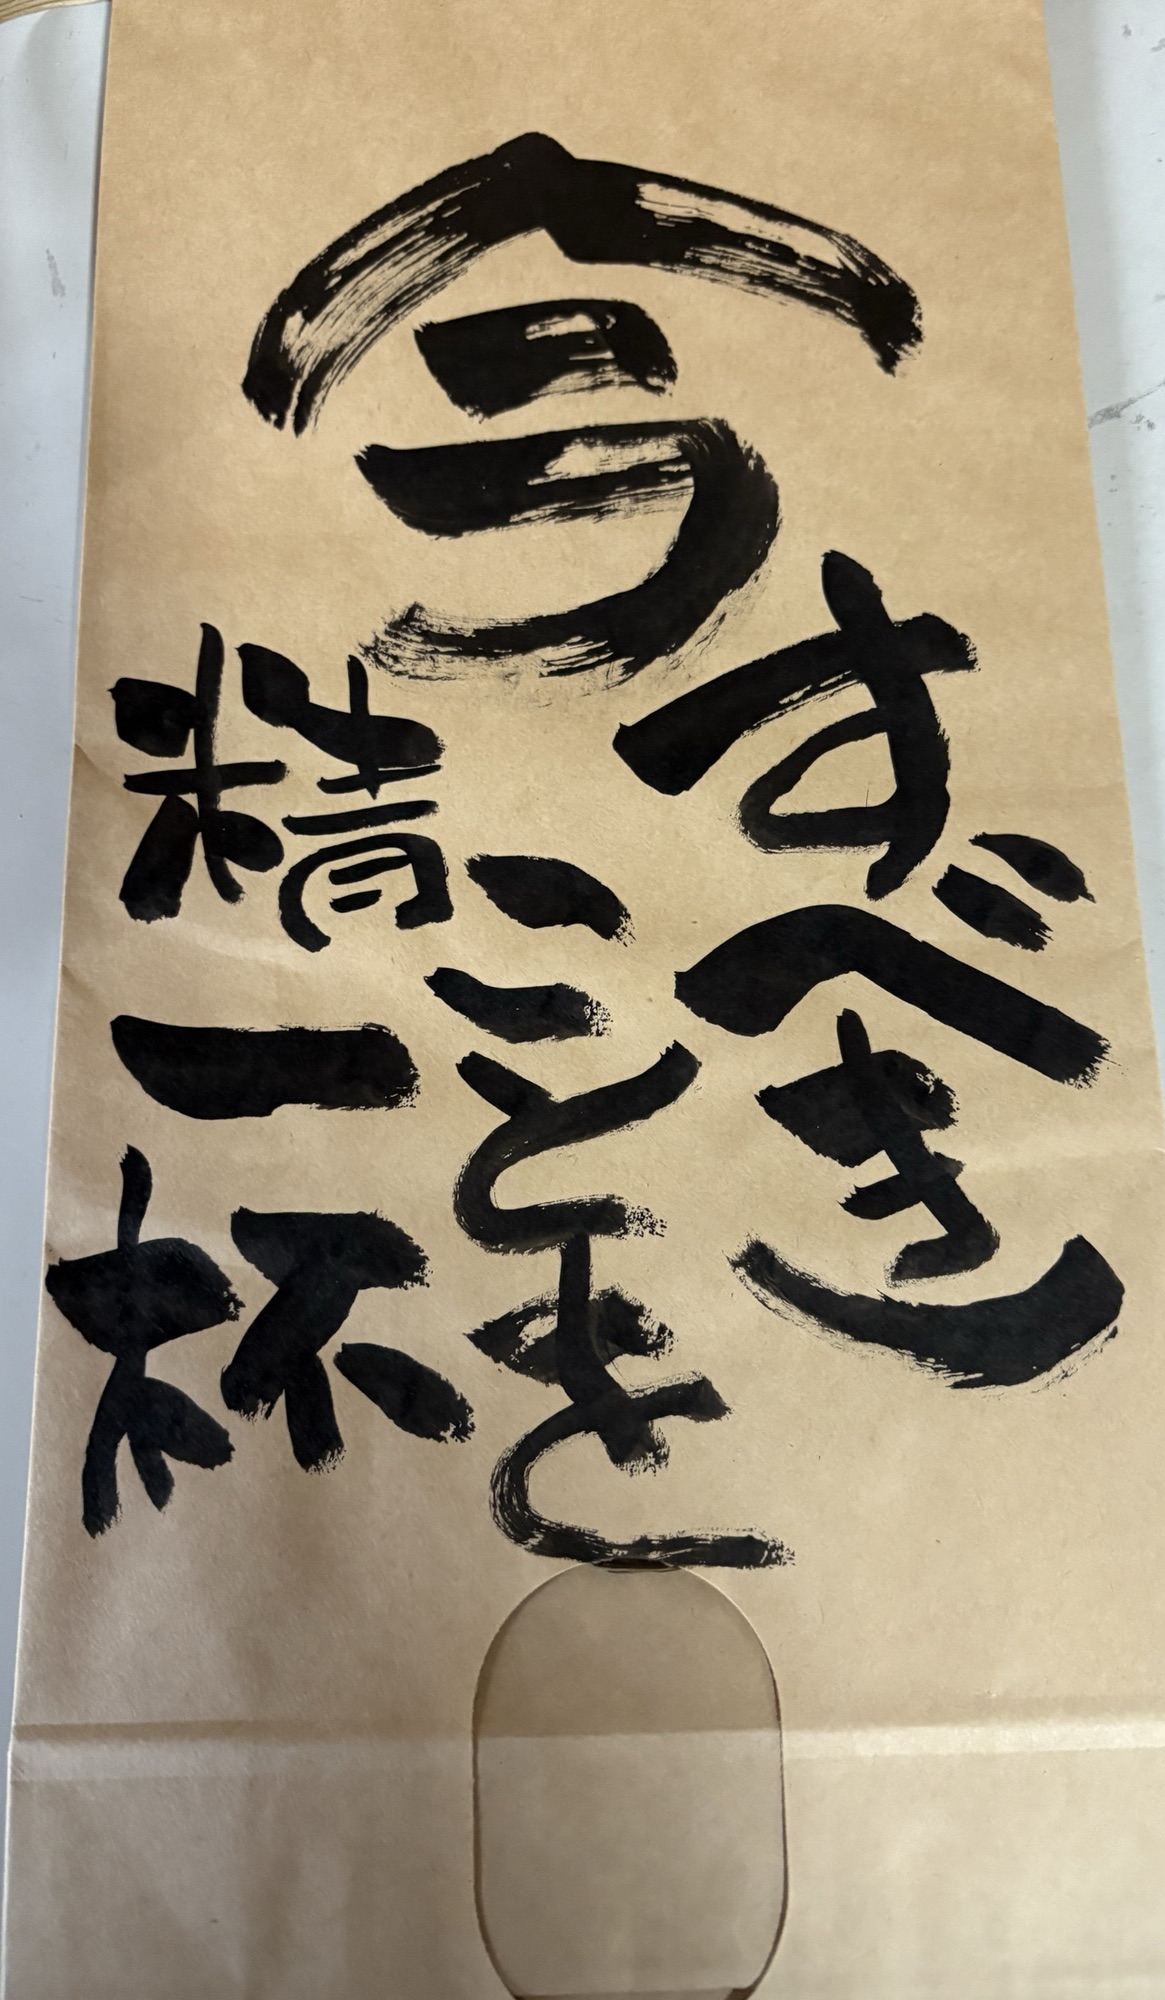 今
すべき
ことを
精一杯